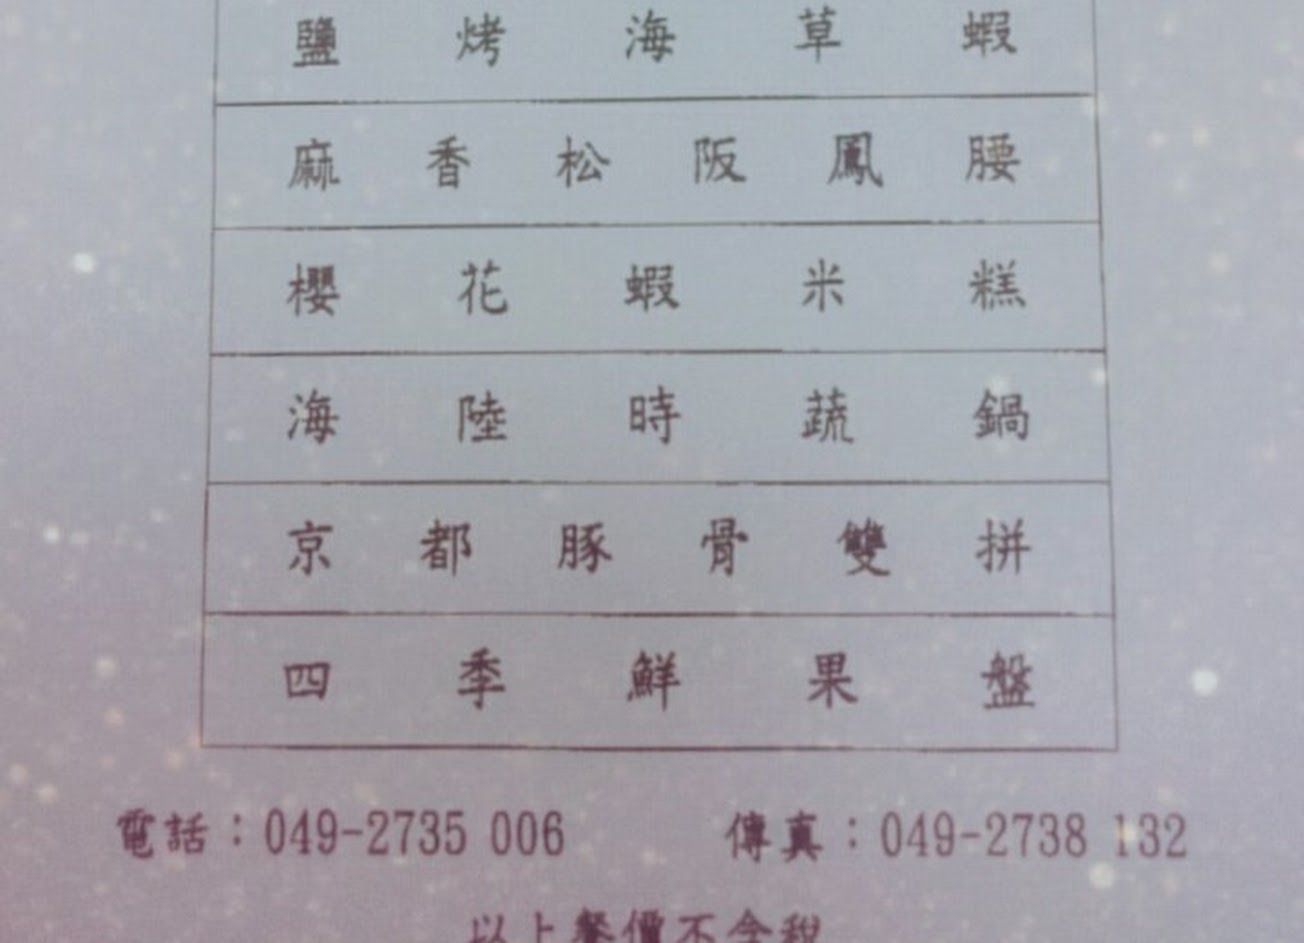 鹽烤海草蝦
麻香松阪鳳腰
櫻花蝦米糕
海陸時蔬鍋
京都豚骨雙拼
四季鮮果盤
電話：049-2735 006 傳真：049-2738 132
以上餐價不含稅